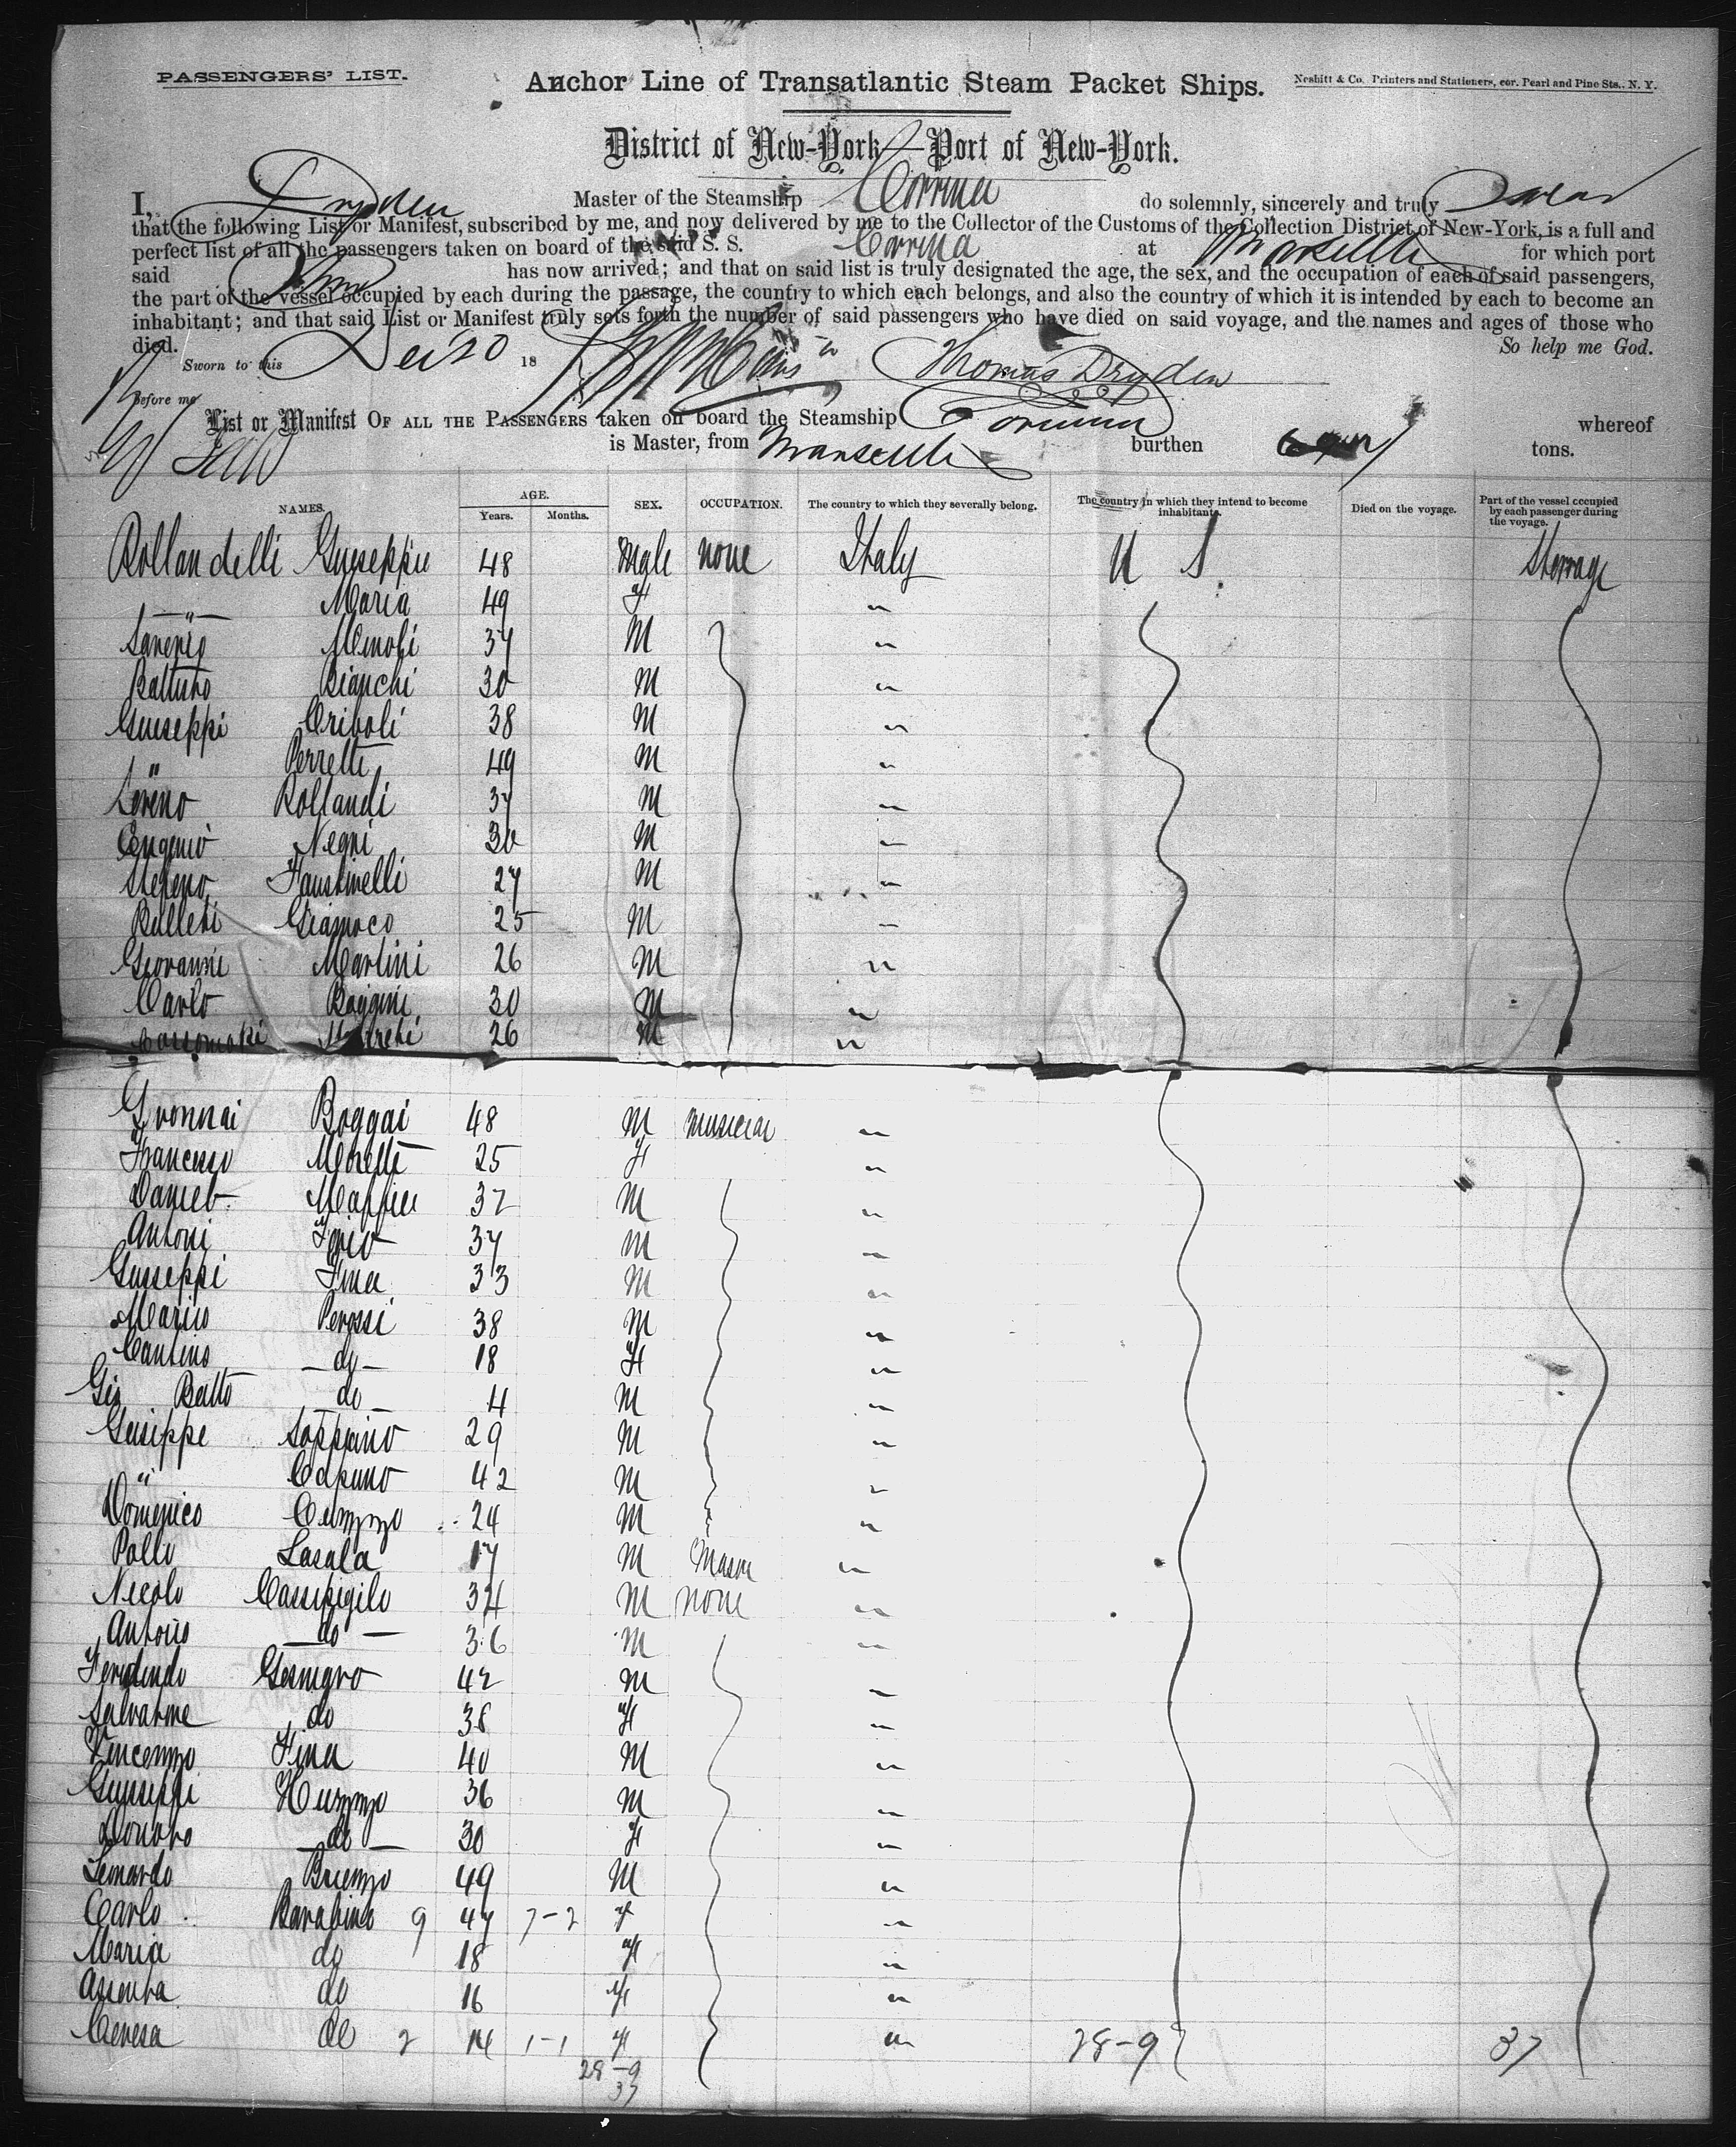 PASSENGERS' LIST.
Anchor Line of Transatlantic Steam Packet Ships.
Nesbitt & Co. Printers and Stationers, cor. Pearl and Pine Sts., N. Y.
District of New-York—Port of New-York.
I, Dryden Master of the Steamship Corrina do solemnly, sincerely and truly Swear
that the following List or Manifest, subscribed by me, and now delivered by me to the Collector of the Customs of the Collection District of New-York, is a full and
perfect list of all the passengers taken on board of the said S. S. Corrina at Marseille for which port
said has now arrived; and that on said list is truly designated the age, the sex, and the occupation of each of said passengers,
the part of the vessel occupied by each during the passage, the country to which each belongs, and also the country of which it is intended by each to become an
inhabitant; and that said List or Manifest truly sets forth the number of said passengers who have died on said voyage, and the names and ages of those who
died. So help me God.
Sworn to this 20 18 Thomas Dryden
Before me
List or Manifest OF ALL THE PASSENGERS taken on board the Steamship whereof
is Master, from Marseille burthen tons.
NAMES. AGE. Years. Months. SEX. OCCUPATION. The country to which they severally belong. The country in which they intend to become inhabitants. Died on the voyage. Part of the vessel occupied by each passenger during the voyage.
Rollandelli Guiseppie 48 Male none Italy U S. Sterrage
—"— Maria 49 F "
Menoli 37 M "
Battisto Bianchi 30 M "
Guiseppi Criboli 38 M "
" Perretti 49 M "
Rollandi 37 M "
Eugenio Negri 30 M "
Steffeno Faustinelli 27 M "
Bulleti Giamoco 25 M "
Giovanni Martini 26 M "
Carlo Boggini 30 M "
26 M "
Gvonnai Boggai 48 M musician "
Francesco Moretti 25 F "
Daniel Maffiei 32 M "
Antoni 37 M "
Guseppi Fina 33 M "
Marius Perossi 38 M "
Cantino —do— 18 F "
Gio Batto do — 4 M "
Guiseppe Soppiano 29 M "
" Capuno 42 M "
Domenico Cuzzzo 24 M "
Pollo Lasala 17 M Mason "
Nicolo Cassipigilo 34 M none "
Antonio —do— 36 M "
Ferdindo Gesmgro 42 M "
Salvatore do 38 F "
Vincenzo Fina 40 M "
Guiseppi Huzzzo 36 M "
Donato —do— 30 F "
Leonardo Brienzo 49 M "
Carlo Barabino 9 47 7-2 F "
Maria do 18 F "
Assunta do 16 F "
Ceresa do 2 14 1-1 F " 28-9 37
28-9
37